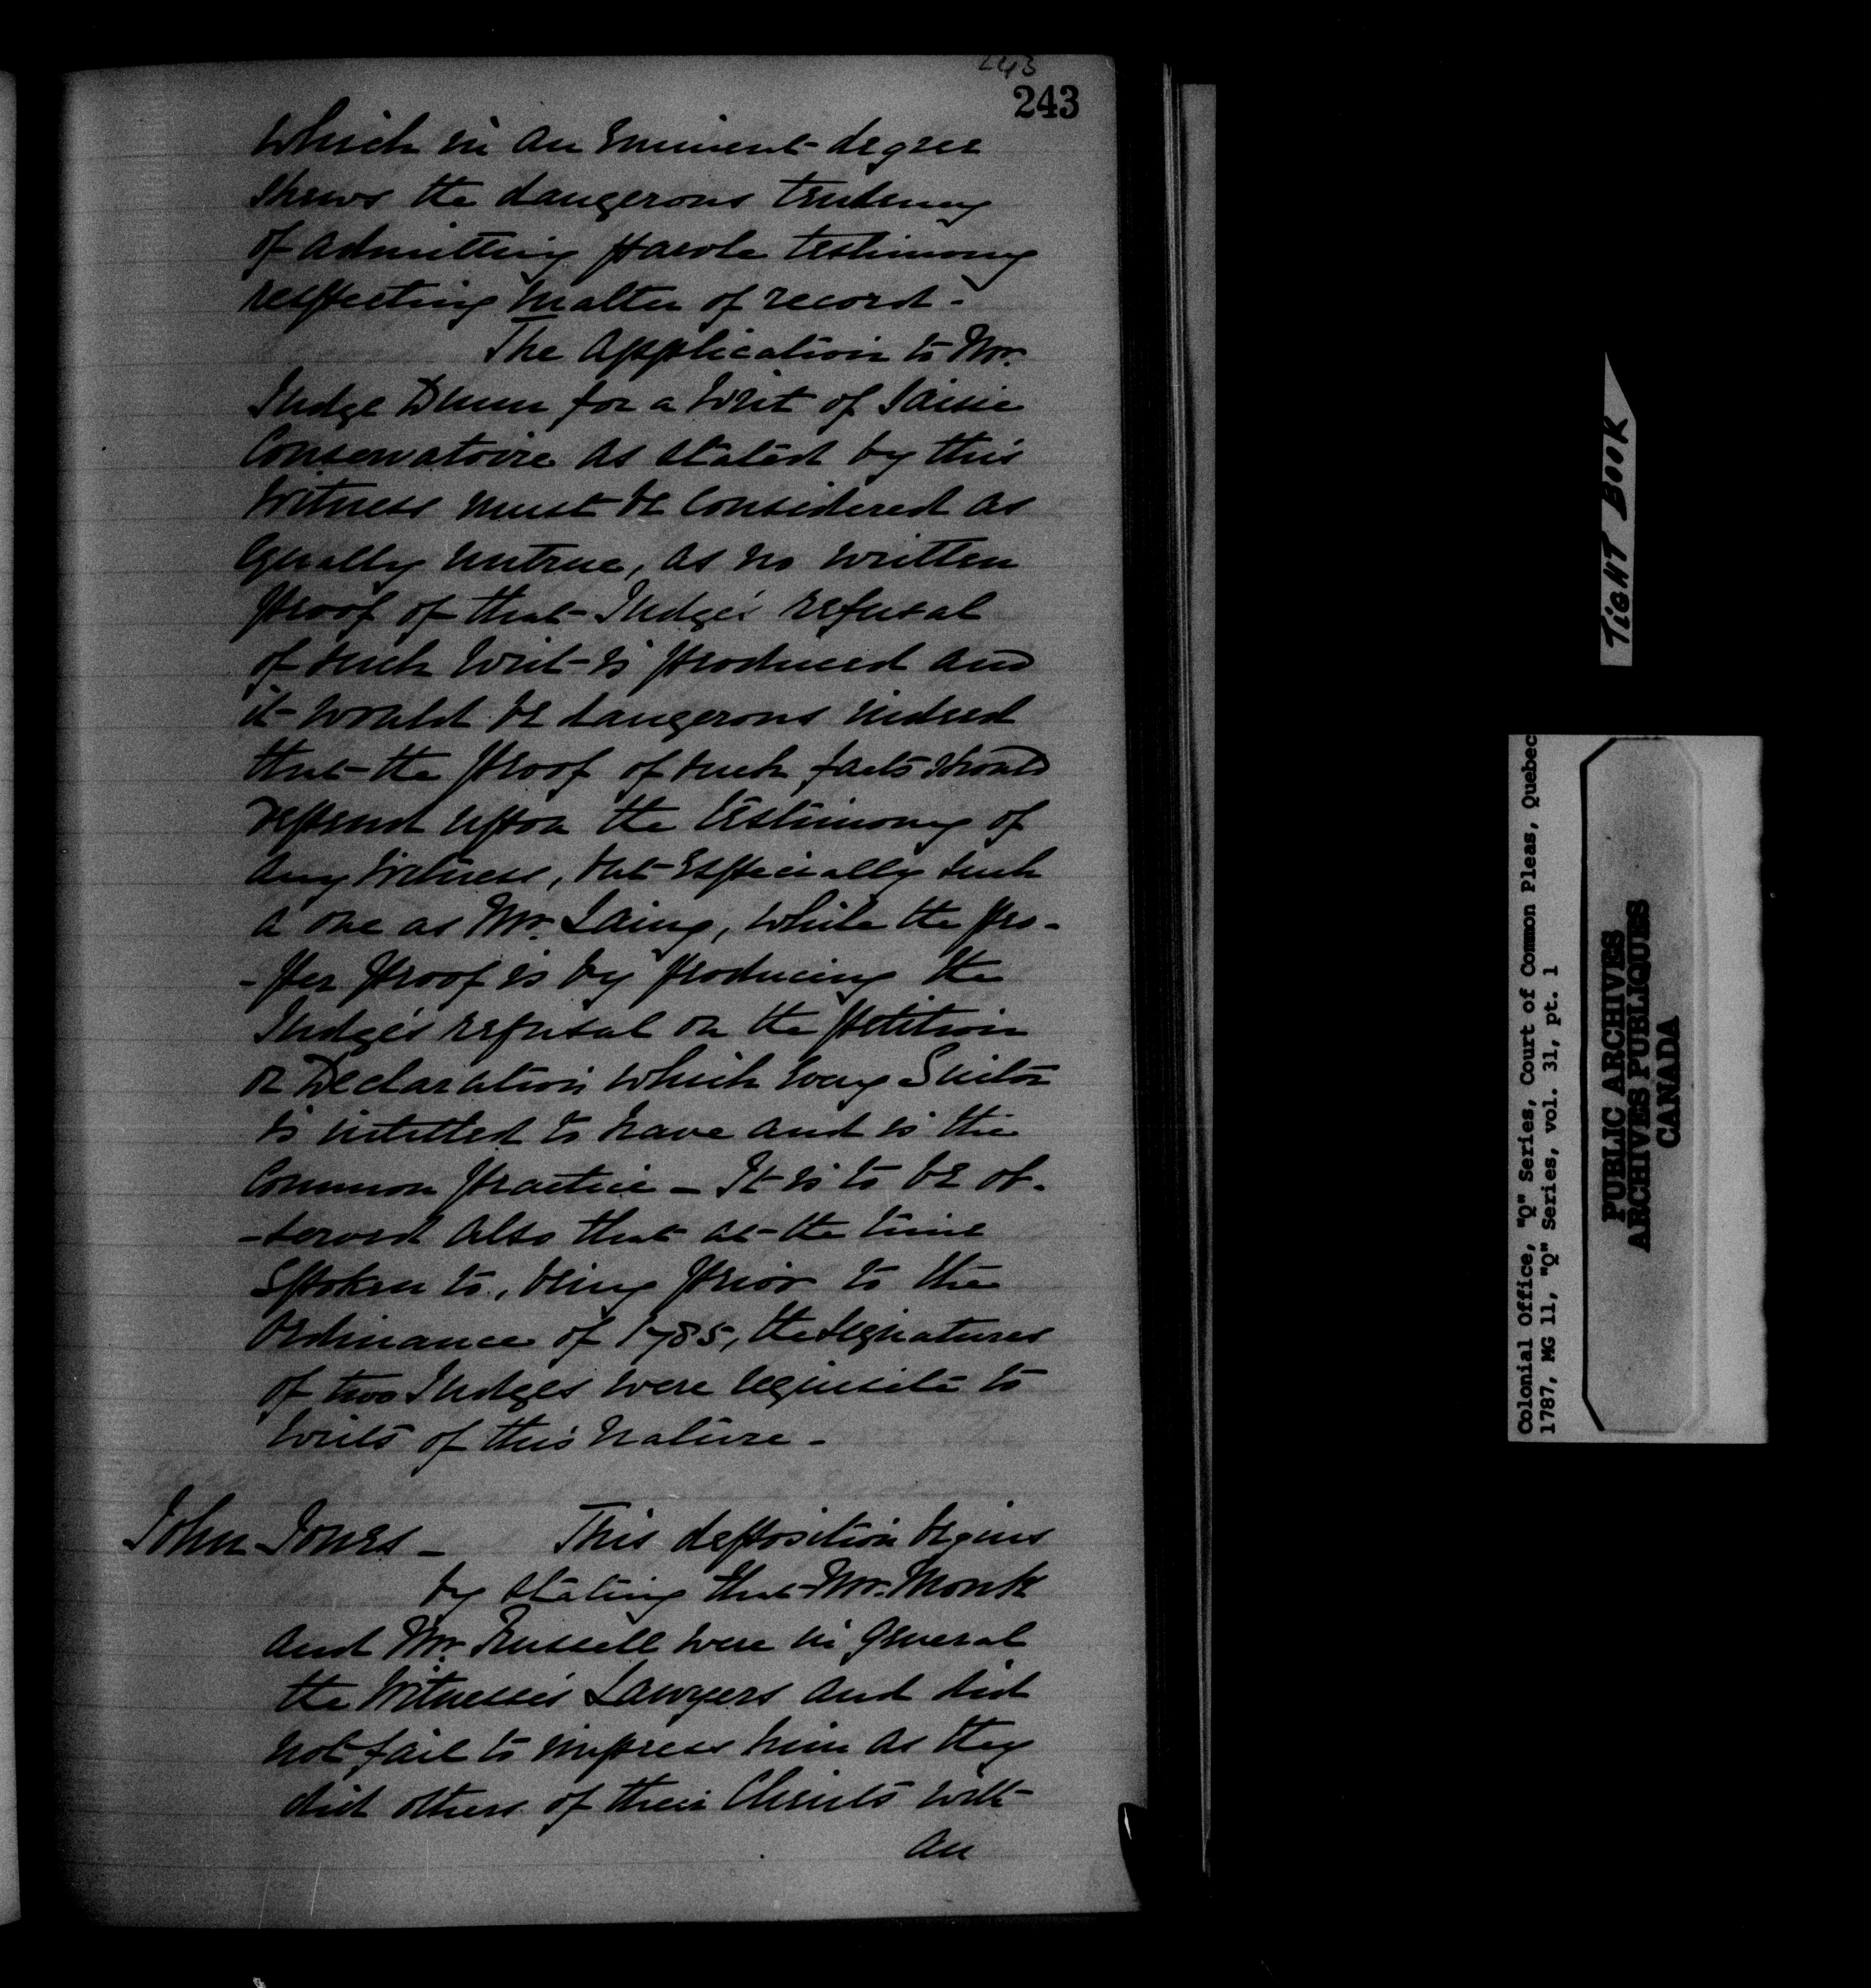 243
243
which in an Eminent degree
shews the dangerous tendency
of admitting parole testimony
respecting matter of record -
The Application to Mr.
Judge Dunn for a Writ of Saisie
Conservatoire as stated by this
Witness must be Considered as
Equally untrue, as no written
proof of that Judge's refusal
of such Writ is produced and
it would be dangerous indeed
that the proof of such facts should
depend upon the testimony of
any Witness, but Especially such
a one as Mr. Laing, while the pro-
-per proof is by producing the
Judge's refusal on the petition
or Declaration which Every Suitor
is intitled to have and is the
Common practice - It is to be ob-
-served also that at the time
Spoken to, being prior to the
Ordinance of 1785, the signatures
of two Judges were requisite to
Writs of this nature -
John Jones - This deposition begins
by stating that Mr. Monk
and Mr. Russell were in general
the Witness's Lawyers and did
not fail to impress him as they
did others of their Clients with
an
TIGHT BOOK
Colonial Office, "Q" Series, Court of Common Pleas, Quebec
1787, MG 11, "Q" Series, vol. 31, pt. 1
PUBLIC ARCHIVES
ARCHIVES PUBLIQUES
CANADA